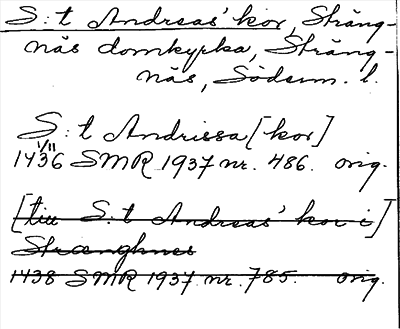 S:t Andreas' kor, Sträng-
näs domkyrka, Sträng-
näs, Söderm. l.
S:t Andrissa [kor]
1/11
1436 SMR 1937 nr. 486. orig.
[till S:t Andreas' kor i]
Strænghnes
1438 SMR 1937 nr. 785. orig.